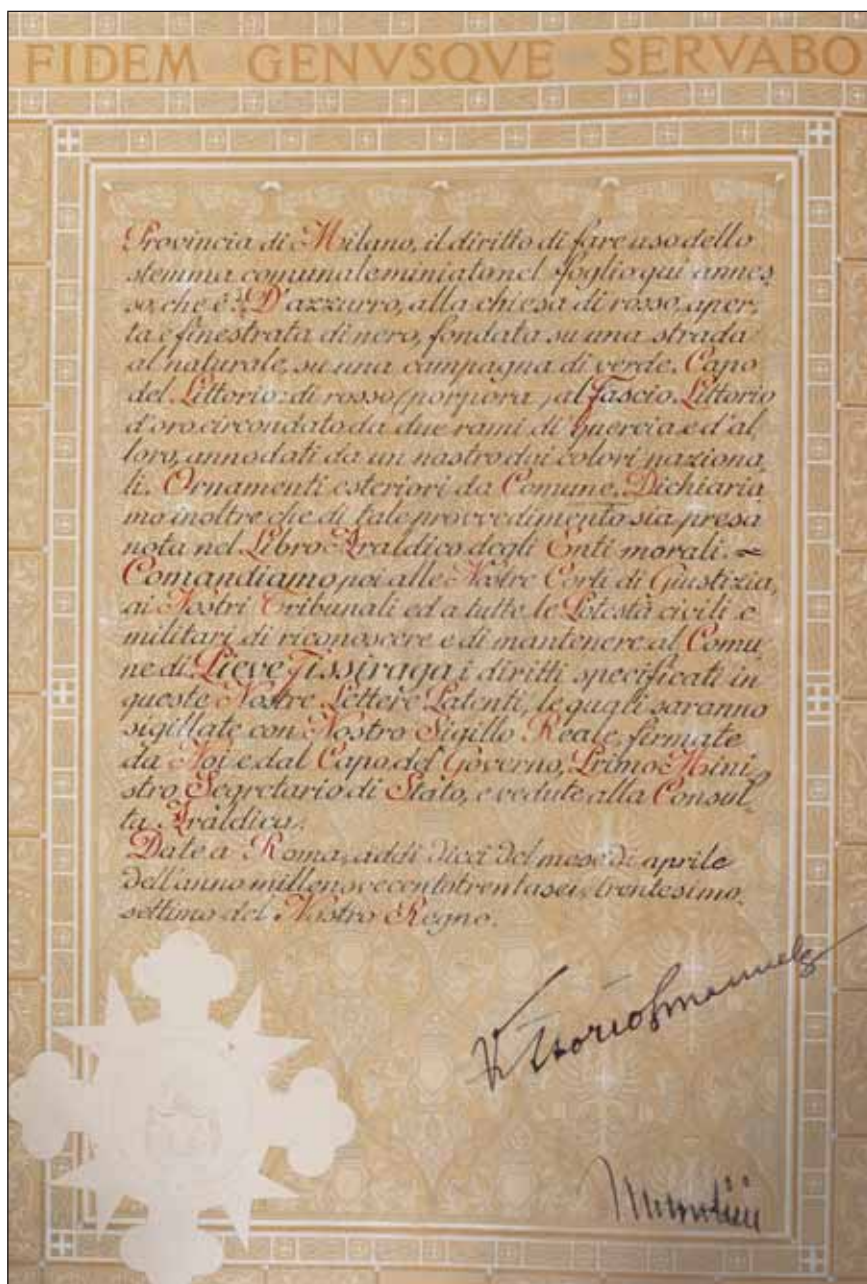 FIDEM GENVSQVE SERVABO
Provincia di Milano, il diritto di fare uso dello
stemma comunale miniato nel foglio qui annes
so, che è: D'azzurro, alla chiesa di rosso, aper-
ta e finestrata di nero, fondata su una strada
al naturale, su una campagna di verde. Capo
del Littorio: di rosso (porpora) al Fascio Littorio
d'oro circondato da due rami di quercia e d'al
loro, annodati da un nastro dai colori naziona
li. Ornamenti esteriori da Comune. Dichiaria
mo inoltre che di tale provvedimento sia presa
nota nel Libro Araldico degli Enti morali. ~
Comandiamo poi alle Nostre Corti di Giustizia,
ai Nostri Tribunali ed a tutte le Potestà civili e
militari di riconoscere e di mantenere al Comu
ne di Pieve Fissiraga i diritti specificati in
queste Nostre Lettere Patenti, le quali saranno
sigillate con Nostro Sigillo Reale, firmate
da Noi e dal Capo del Governo, Primo Mini
stro, Segretario di Stato, e vedute alla Consul-
ta Araldica.
Date a Roma, addì dieci del mese di aprile
dell'anno millenovecentotrentasei, trentesimo
settimo del Nostro Regno.
Vittorio Emanuele
Mussolini